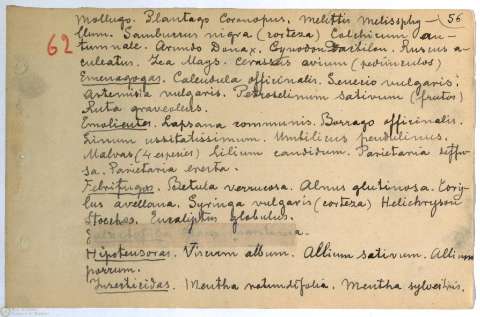 Mollugo. Plantago Coronopus. Melittis Melissphy- 56
62 llum. Sambucus nigra (corteza) Colchicum au-
tumnale. Arundo Donax. Cynodon Dactilon. Ruscus a-
culeatus. Zea Mays. Cerassus avium (pedúnculos)
Emenagogas. Calendula officinalis. Senecio vulgaris.
Artemisia vulgaris. Petroselinum sativum (frutos)
Ruta graveolens.
Emolientes. Lapsana communis. Borrago officinalis.
Linum ussitatissimum. Umbilicus pendulinus.
Malvas (4 especies) Lilium candidum. Parietaria diffu-
sa. Parietaria erecta.
Febrífugas. Betula verrucosa. Alnus glutinosa. Cory-
lus avellana. Syringa vulgaris (corteza) Helichryson
Stoechas. Eucaliptus globulus.
Hipotensoras. Viscum album. Allium sativum. Allium
porrum.
Insecticidas. Mentha rotundifolia. Mentha sylvestris.